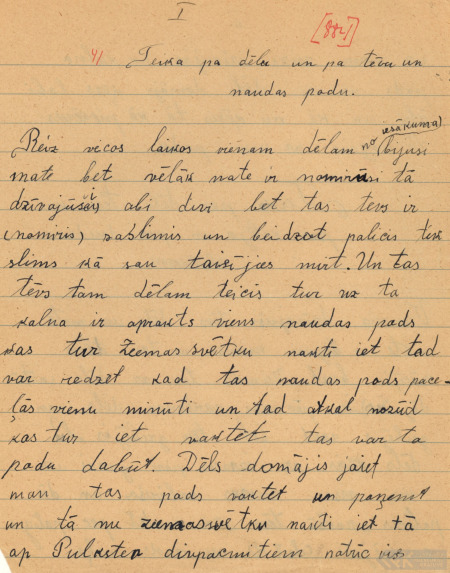 I
[884]
4) Tika pa dēlu un pa tēvu un
naudas podu.
Reiz vecos laikos vienam dēlam no iesākuma) bijusi
mate bet vēlāk mate ir nomirusi tā
dzīvajuši abi divi bet tas tevs ir
(nomiris) saslimis un beidzot palicis tik
slims kā sau taisijoes mirt. Un tas
tēvs tam dēlam teicis tur uz ta
kalna ir aprakts viens naudas pods
kas tur Ziemas svētku nakti iet tad
var redzet kad tas naudas pods pace-
ļās vienu minūti un tad atkal nozūd
kas tur iet vaktēt tas var ta
podu dabūt. Dēls domājis jaiet
man tas pods vaktet un paņemt
un tā nu ziemassvētku nakti iet tā
ap Pulksten divpacmitiem natrūcis